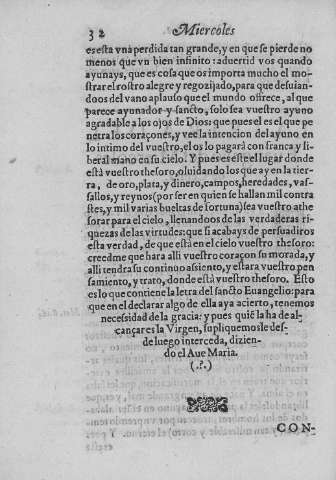 32 Miercoles
es esta vna perdida tan grande, y en que se pierde no
menos que vn bien infinito: aduertid vos quando
ayunays, que es cosa que os importa mucho el mo-
strar el rostro alegre y regozijado, para que desuian-
doos del vano aplauso que el mundo offrece, al que
parece ayunador y sancto, solo sea vuestro ayuno
agradable a los ojos de Dios: que pues el es el que pe
netra los coraçones, y vee la intencion del ayuno en
lo intimo del vuestro, el os lo pagará con franca y li-
beral mano en su cielo. Y pues es este el lugar donde
està vuestro thesoro, oluidando los que ay en la tier-
ra, de oro, plata, y dinero, campos, heredades, vas-
sallos, y reynos (por ser en quien se hallan mil contra
stes, y mil varias bueltas de fortuna) sea vuestro athe
sorar para el cielo, llenandoos de las verdaderas ri-
quezas de las virtudes: que si acabays de persuadiros
esta verdad, de que està en el cielo vuestro thesoro:
creedme que hara alli vuestro coraçon su morada, y
alli tendra su continuo assiento, y estara vuestro pen
samiento, y trato, donde està vuestro thesoro. Esto
es lo que contiene la letra del sancto Euangelio: para
que en el declarar algo de ella aya acierto, tenemos
necessidad de la gracia: y pues quiē la ha de al-
cançar es la Virgen, supliquemosle des-
de luego interceda, dizien-
do el Aue Maria.
(.?.)
CON-